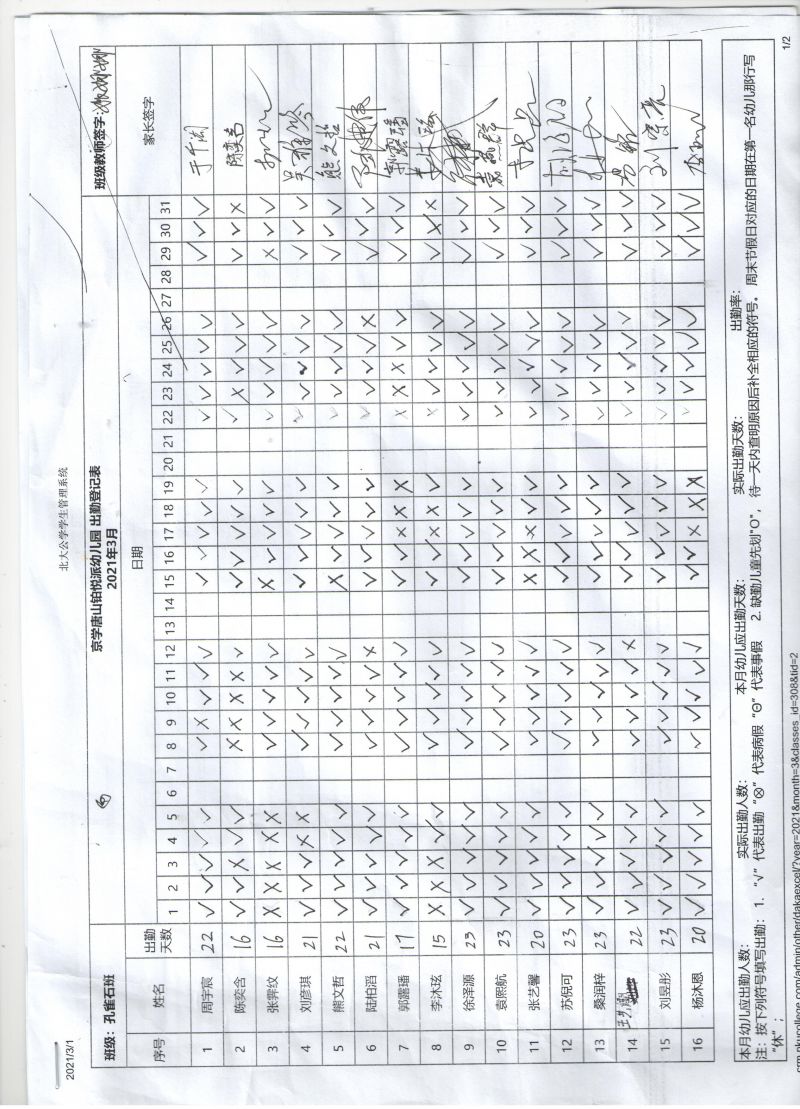 2021/3/1 北大公学学生管理系统
京学唐山铂悦派幼儿园 出勤登记表
2021年3月
班级：孔雀石班 班级教师签字：
序号 姓名 出勤天数 日期 家长签字
1 2 3 4 5 6 7 8 9 10 11 12 13 14 15 16 17 18 19 20 21 22 23 24 25 26 27 28 29 30 31
1 周宇宸 22 √ √ √ √ √ √ × √ √ √ √ √ √ √ √ √ √ √ √ √ √ √ √
2 陈奕含 16 √ √ × √ √ × × × × √ √ √ √ √ √ √ × √ √ √ √ √ ×
3 张霁纹 16 × × × × × √ √ √ √ √ × √ √ √ √ √ √ √ √ √ × √ √
4 刘彦琪 21 √ √ √ × × √ √ √ √ √ √ √ √ √ √ √ √ √ √ √ √ √ √
5 熊文哲 22 √ √ √ √ √ √ √ √ √ √ × √ √ √ √ √ √ √ √ √ √ √ √
6 陆柏滔 21 √ √ √ √ √ √ √ √ √ × √ √ √ √ √ √ √ √ √ × √ √ √
7 郭露璠 17 √ √ √ √ √ √ √ √ √ √ √ √ × × × × × × √ √ √ √ √
8 李沐玹 15 × × × √ √ √ √ √ √ √ √ √ × × √ × √ √ √ √ √ × ×
9 徐泽源 23 √ √ √ √ √ √ √ √ √ √ √ √ √ √ √ √ √ √ √ √ √ √ √
10 袁熙航 23 √ √ √ √ √ √ √ √ √ √ √ √ √ √ √ √ √ √ √ √ √ √ √
11 张艺馨 20 √ √ √ √ √ √ √ √ √ √ × × × √ √ √ √ √ √ √ √ √ √
12 苏倪可 23 √ √ √ √ √ √ √ √ √ √ √ √ √ √ √ √ √ √ √ √ √ √ √
13 桑润梓 23 √ √ √ √ √ √ √ √ √ √ √ √ √ √ √ √ √ √ √ √ √ √ √
14 22 √ √ √ √ √ √ √ √ √ × √ √ √ √ √ √ √ √ √ √ √ √ √
15 刘昱彤 23 √ √ √ √ √ √ √ √ √ √ √ √ √ √ √ √ √ √ √ √ √ √ √
16 杨沐恩 20 √ √ √ √ √ √ √ √ √ √ √ √ × × × √ √ √ √ √ √ √ √
本月幼儿应出勤人数： 实际出勤人数： 本月幼儿应出勤天数： 实际出勤天数： 出勤率：
注：按下列符号填写出勤：1. “√”代表出勤 “⊗”代表病假 “Θ”代表事假 2. 缺勤儿童先划"O"，待一天内查明原因后补全相应的符号。周末节假日对应的日期在第一名幼儿那行写
“休”；
crm.pkucollege.com/admin/other/dakaexcel/?year=2021&month=3&classes_id=308&tid=2 1/2